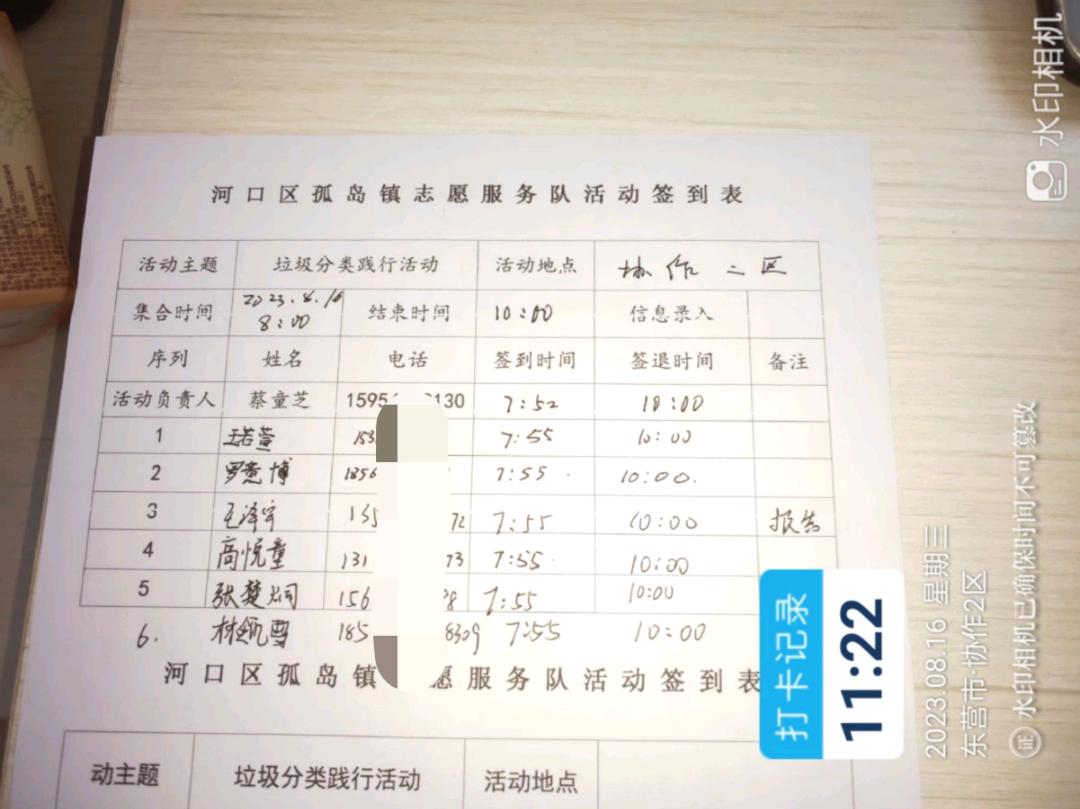 河口区孤岛镇志愿服务队活动签到表
活动主题 垃圾分类践行活动 活动地点 协作二区
集合时间 2023.8.16 8:00 结束时间 10:00 信息录入
序列 姓名 电话 签到时间 签退时间 备注
活动负责人 蔡童芝 1595 130 7:52 10:00
1 王若萱 153 7:55 10:00
2 罗意博 1856 7:55 10:00.
3 王泽宇 135 72 7:55 10:00 报告
4 高悦童 131 73 7:55 10:00
5 张楚 156 7:55 10:00
6. 林 185 8309 7:55 10:00
河口区孤岛镇 愿服务队活动签到表
动主题 垃圾分类践行活动 活动地点
打卡记录
11:22
2023.08.16 星期三
东营市·协作2区
证 水印相机已确保时间不可篡改
水印相机